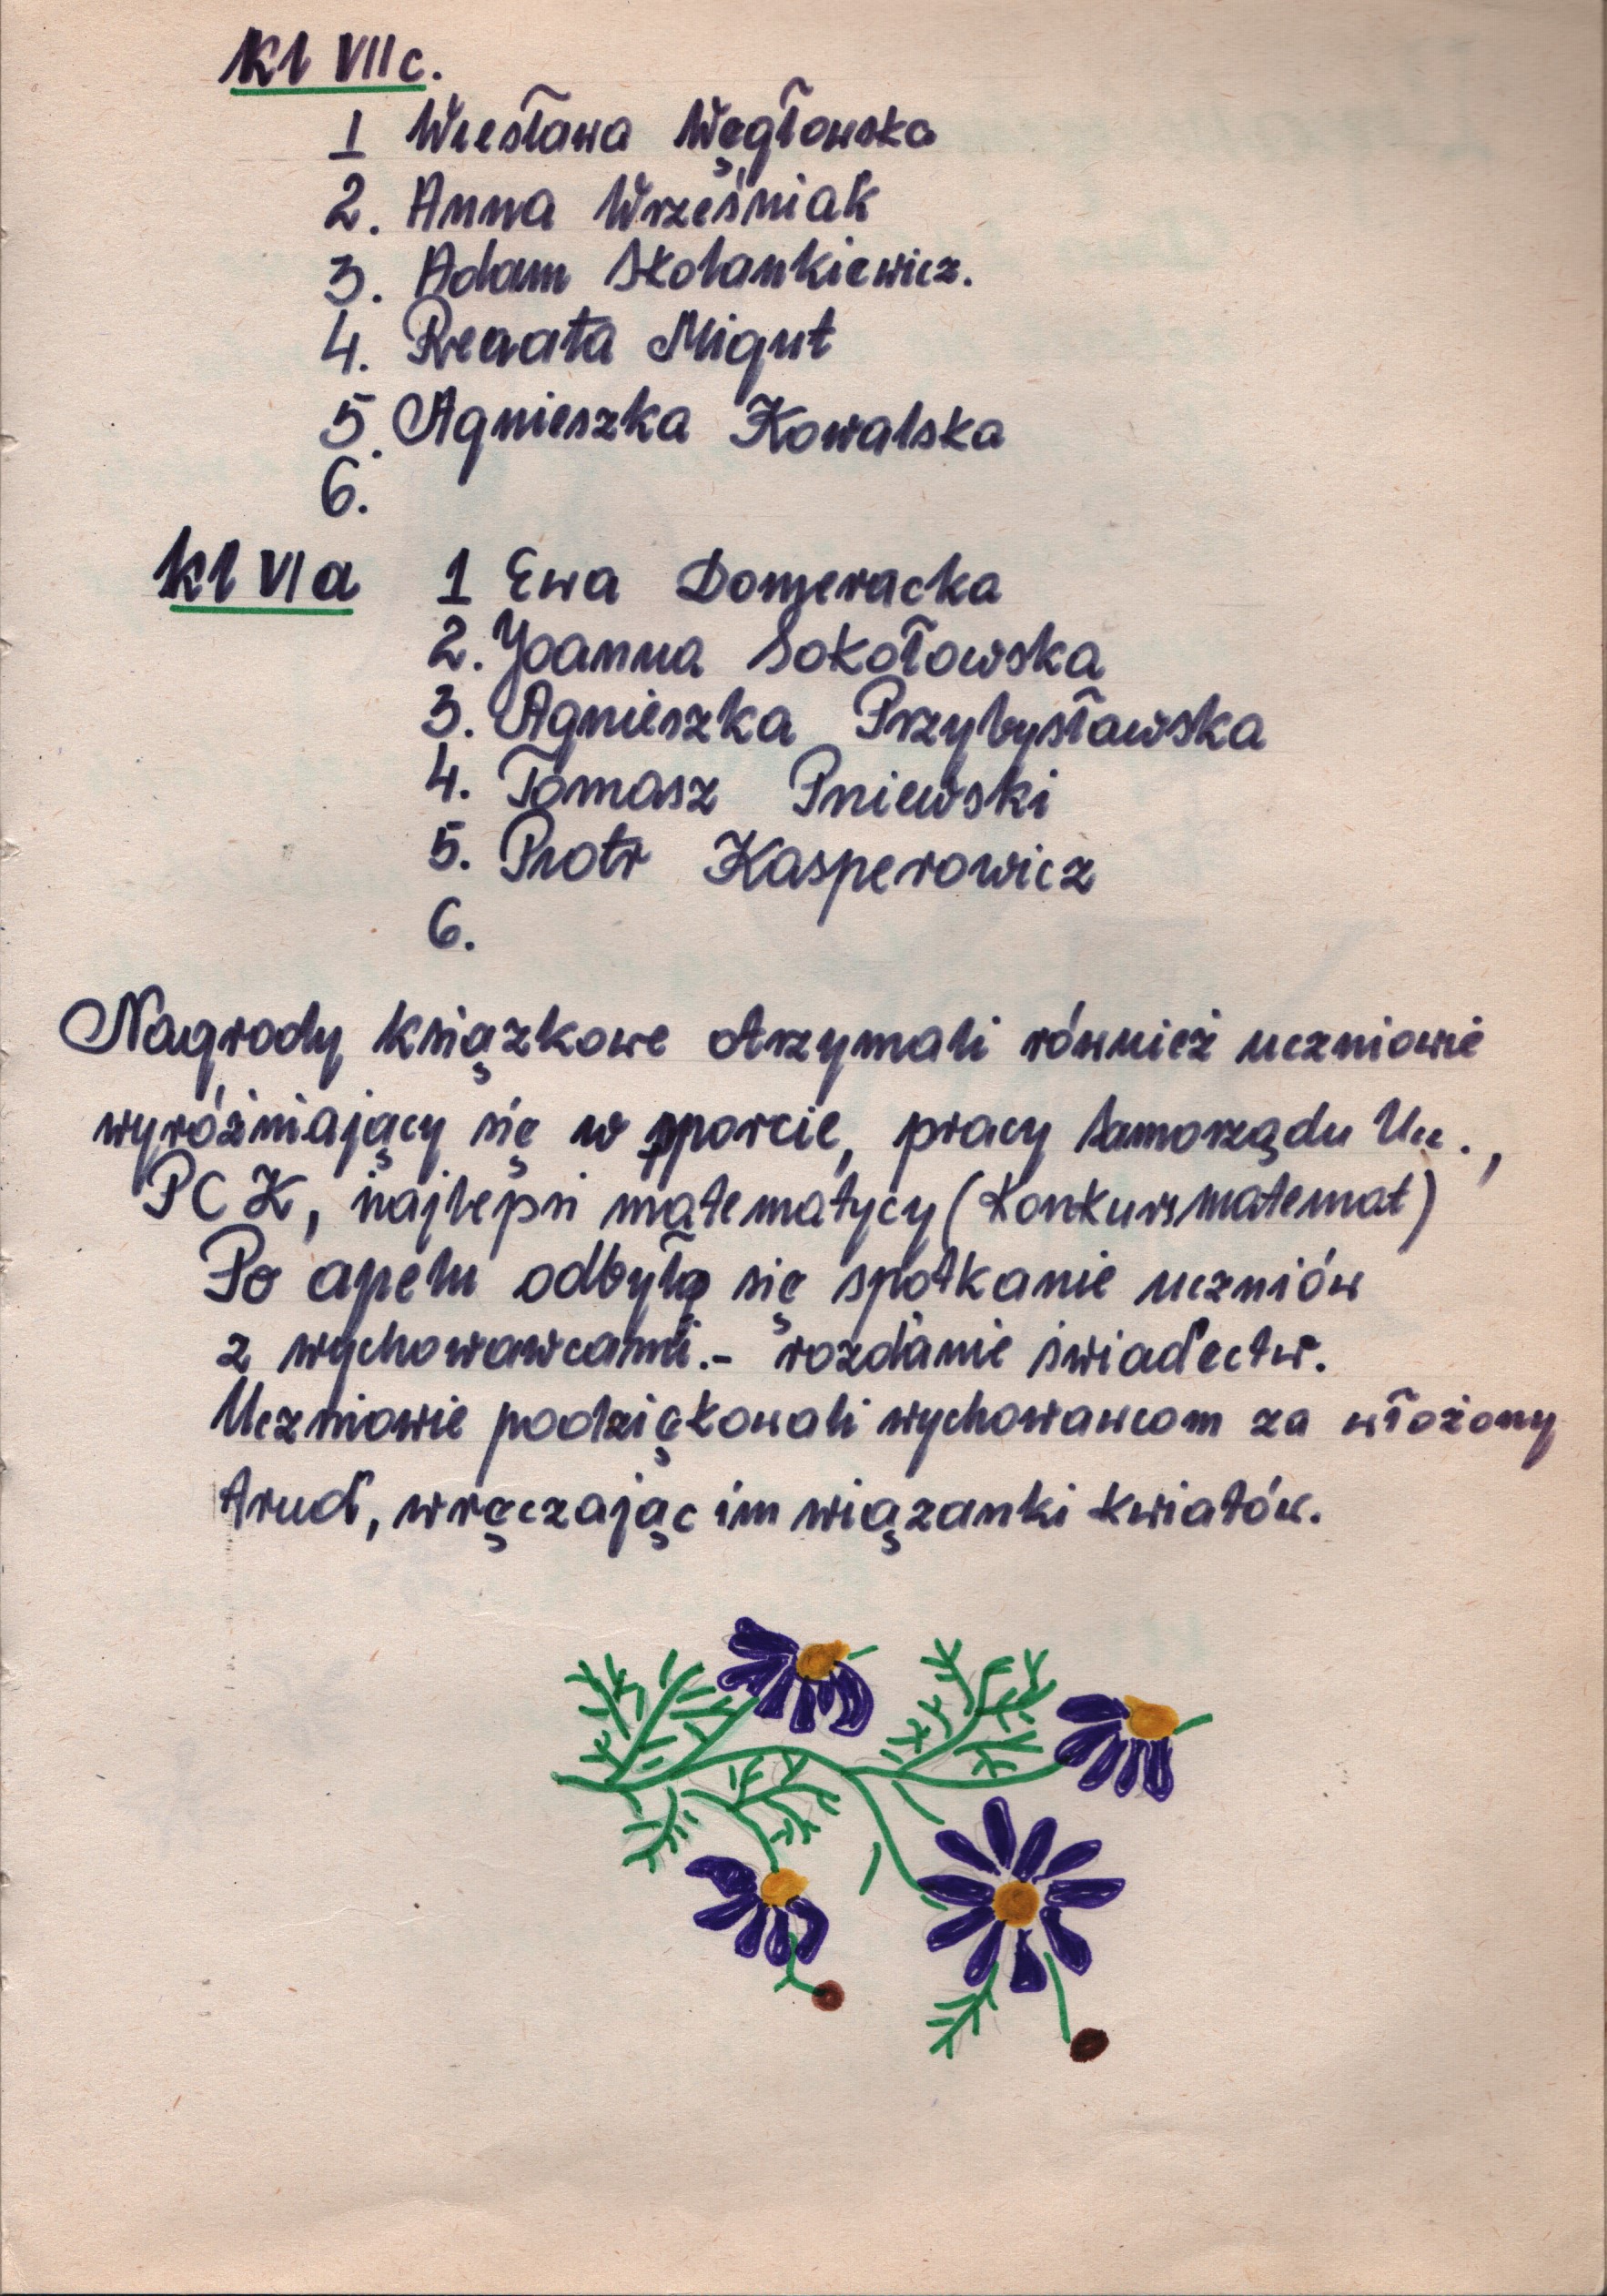 Kl VII c.
1 Wiesława Węgłowska
2. Anna Wrześniak
3. Adam Skolankiewicz.
4. Renata Migut
5. Agnieszka Kowalska
6.
kl VI a 1 Ewa Domeracka
2. Joanna Sokołowska
3. Agnieszka Przybysławska
4. Tomasz Pniewski
5. Piotr Kasperowicz
6.
Nagrody książkowe otrzymali również uczniowie
wyróżniający się w sporcie, pracy Samorządu Ucz.,
PCK, najlepsi matematycy (konkurs matemat)
Po apelu odbyło się spotkanie uczniów
z wychowawcami.- rozdanie świadectw.
Uczniowie podziękowali wychowawcom za włożony
trud, wręczając im wiązanki kwiatów.